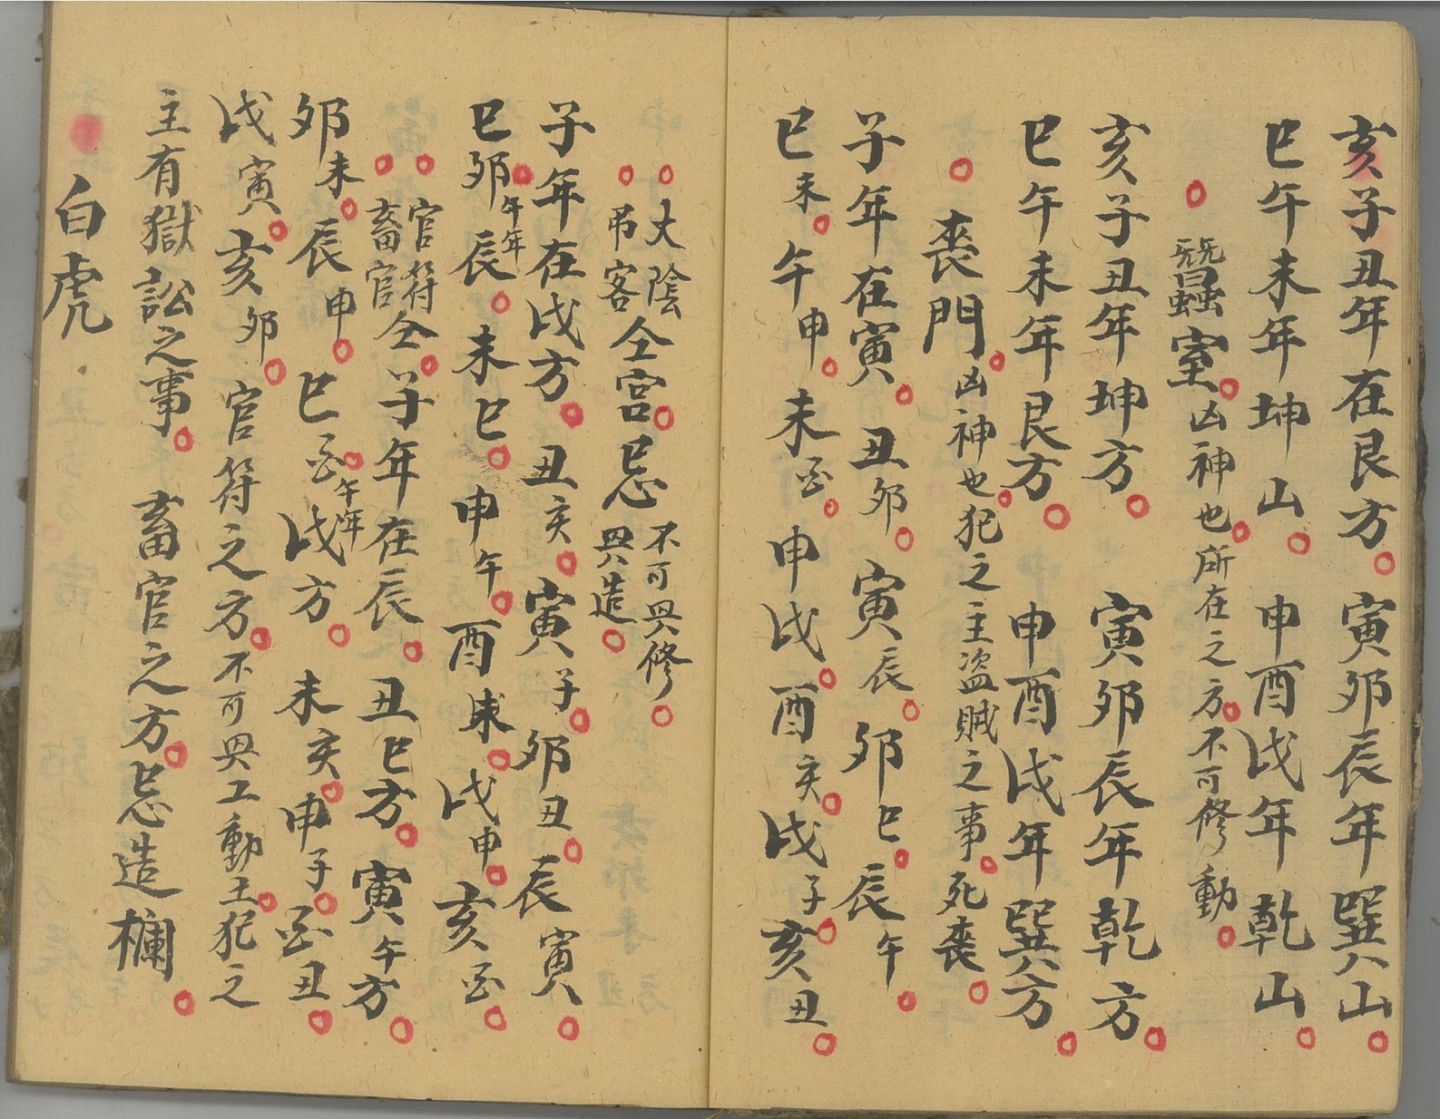 亥子丑年在艮方寅卯辰年巽山
巳午未年坤山申酉戌年乾山
蠶室凶神也所在之方不可修動
亥子丑年坤方寅卯辰年乾方
巳午未年艮方申酉戌年巽方
喪門凶神也犯之主盜賊之事死喪
子年在寅丑卯寅辰卯巳辰午
巳未午申未酉申戌酉亥戌子亥丑
太陰弔客仝宮忌不可興修興造
子年在戌方丑亥寅子卯丑辰寅
巳卯午年辰未巳申午酉未戌申亥酉
官符畜官仝子年在辰丑巳方寅午方
卯未辰申巳酉午年戌方未亥申子酉丑
戌寅亥卯官符之方不可興工動土犯之
主有獄訟之事畜官之方忌造欄
白虎